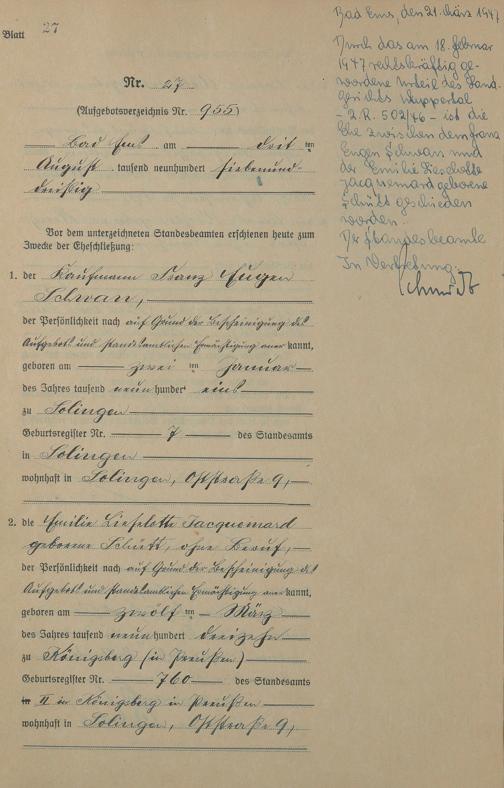 Blatt 27
Nr. 27
(Aufgebotsverzeichnis Nr. 955)
Bad Ems am drit ten
August tausend neunhundert siebenund-
dreißig
Vor dem unterzeichneten Standesbeamten erschienen heute zum
Zwecke der Eheschließung:
1. der Kaufmann Franz Eugen
Schwan,
der Persönlichkeit nach auf Grund der Bescheinigung des
Aufgebots und standesamtlichen Ermächtigung aner kannt,
geboren am zwei ten Januar
des Jahres tausend neunhundert eins
zu Solingen
Geburtsregister Nr. 7 des Standesamts
in Solingen
wohnhaft in Solingen, Oststraße 9,
2. die Emilie Lieselotte Jacquemard
geborene Schütt, ohne Beruf,
der Persönlichkeit nach auf Grund der Bescheinigung des
Aufgebots und standesamtlichen Ermächtigung aner kannt,
geboren am zwölf ten März
des Jahres tausend neunhundert dreizehn
zu Königsberg (in Preußen)
Geburtsregister Nr. 760 des Standesamts
in II in Königsberg in Preußen
wohnhaft in Solingen, Oststraße 9,
Bad Ems, den 21. März 1947
Durch das am 18. Februar
1947 rechtskräftig ge-
wordene Urteil des Land-
gerichts Wuppertal
- 2. R. 502/46 - ist die
Ehe zwischen dem Franz
Eugen Schwan und
der Emilie Lieselotte
Jacquemard geborene
Schütt geschieden
worden.
Der Standesbeamte
In Vertretung: